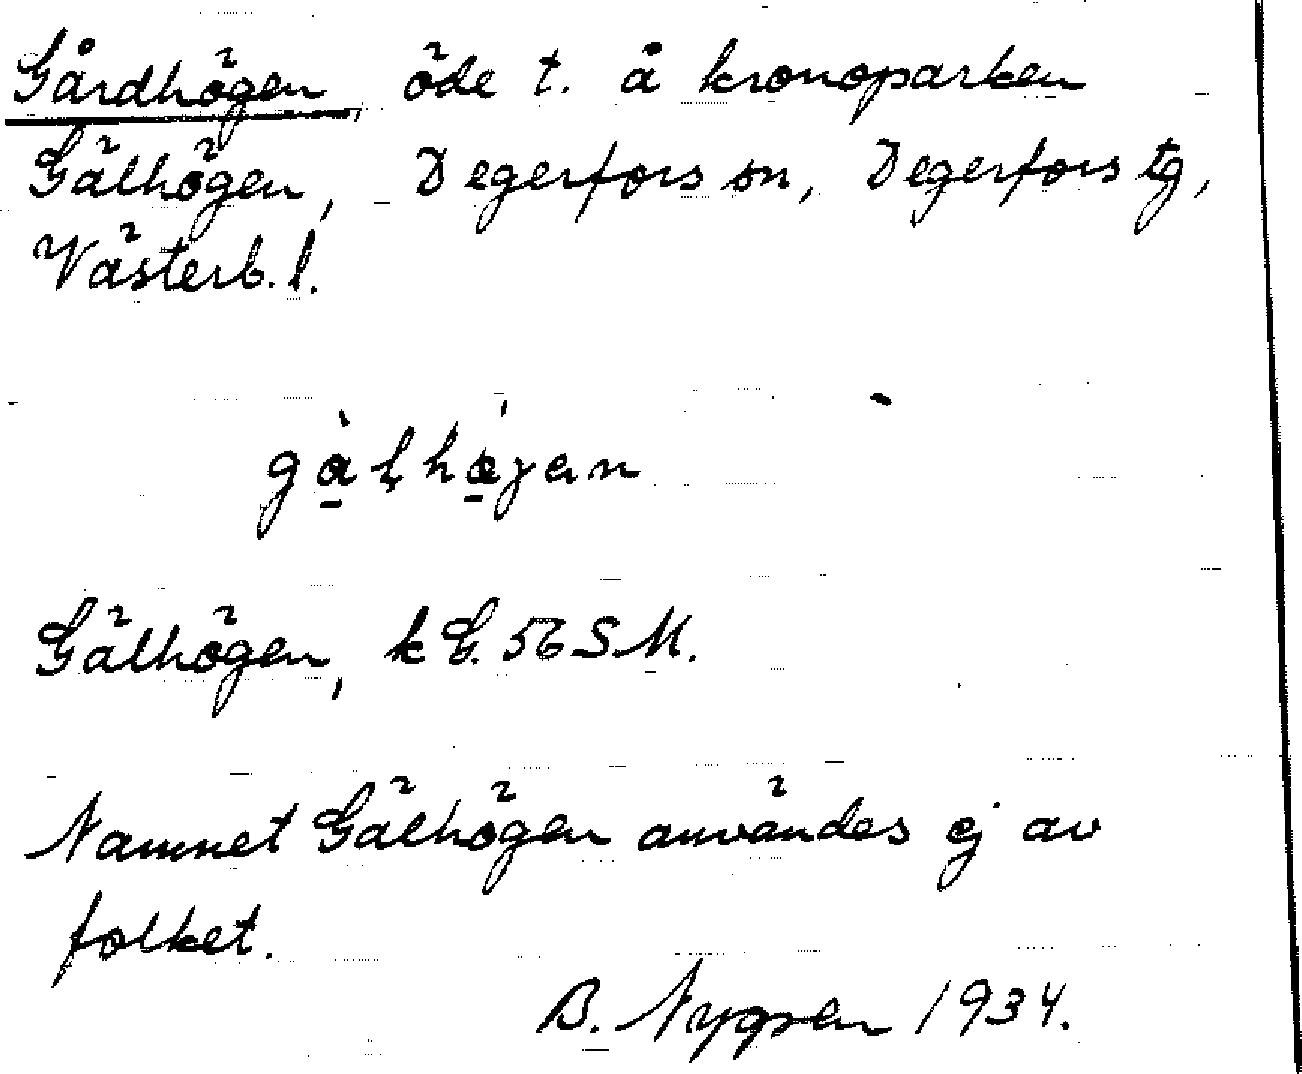 Gårdhögen öde t. å kronoparken
Gälhögen, Degerfors sn, Degerfors tg,
Västerb. l.
Gälhögen, k G. 56 S.M.
Namnet Gälhögen användes ej av
folket.
B. Nygren 1934.